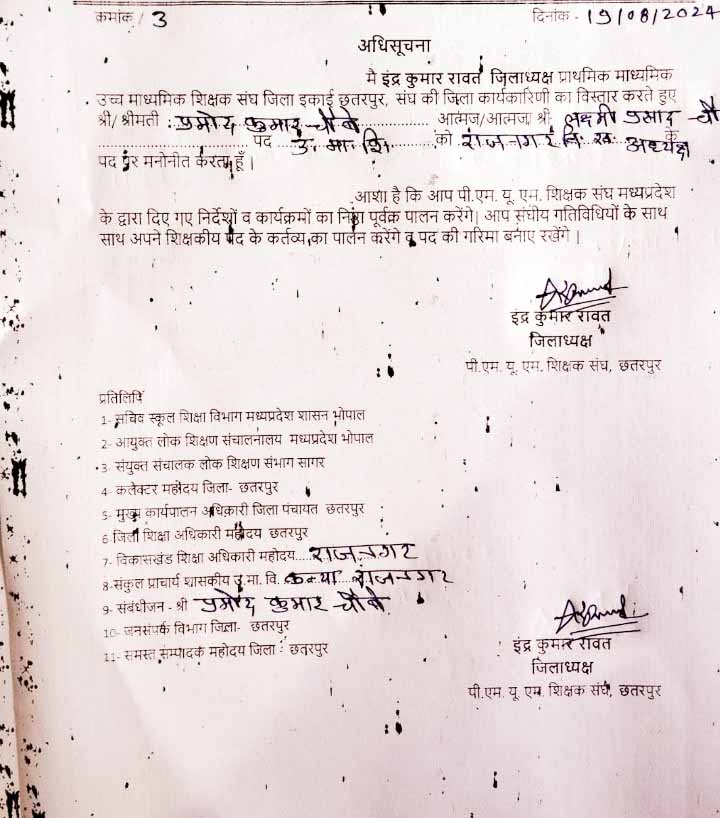 क्रमांक / 3 दिनांक - 19/08/2024
अधिसूचना
मै इंद्र कुमार रावत जिलाध्यक्ष प्राथमिक माध्यमिक
उच्च माध्यमिक शिक्षक संघ जिला इकाई छतरपुर, संघ की जिला कार्यकारिणी का विस्तार करते हुए
श्री/श्रीमती : प्रमोद कुमार चौबे आत्मज/आत्मजा श्री लक्ष्मी प्रसाद चौ
पद उ. मा. शि. को राजनगर वि. ख. अध्यक्ष के
पद पर मनोनीत करता हूँ।
आशा है कि आप पी.एम. यू. एम. शिक्षक संघ मध्यप्रदेश
के द्वारा दिए गए निर्देशों व कार्यक्रमों का निष्ठा पूर्वक पालन करेंगे। आप संघीय गतिविधियों के साथ
साथ अपने शिक्षकीय पद के कर्तव्य का पालन करेंगे व पद की गरिमा बनाए रखेंगे।
इंद्र कुमार रावत
जिलाध्यक्ष
पी.एम. यू. एम. शिक्षक संघ, छतरपुर
प्रतिलिपि
1- सचिव स्कूल शिक्षा विभाग मध्यप्रदेश शासन भोपाल
2- आयुक्त लोक शिक्षण संचालनालय मध्यप्रदेश भोपाल
3- संयुक्त संचालक लोक शिक्षण संभाग सागर
4- कलेक्टर महोदय जिला- छतरपुर
5- मुख्य कार्यपालन अधिकारी जिला पंचायत छतरपुर
6- जिला शिक्षा अधिकारी महोदय छतरपुर
7- विकासखंड शिक्षा अधिकारी महोदय.....राजनगर
8- संकुल प्राचार्य शासकीय उ.मा. वि. कन्या राजनगर
9- संबंधीजन - श्री प्रमोद कुमार चौबे
10- जनसंपर्क विभाग जिला- छतरपुर
11- समस्त संम्पादक महोदय जिला : छतरपुर
इंद्र कुमार रावत
जिलाध्यक्ष
पी.एम. यू. एम. शिक्षक संघ, छतरपुर